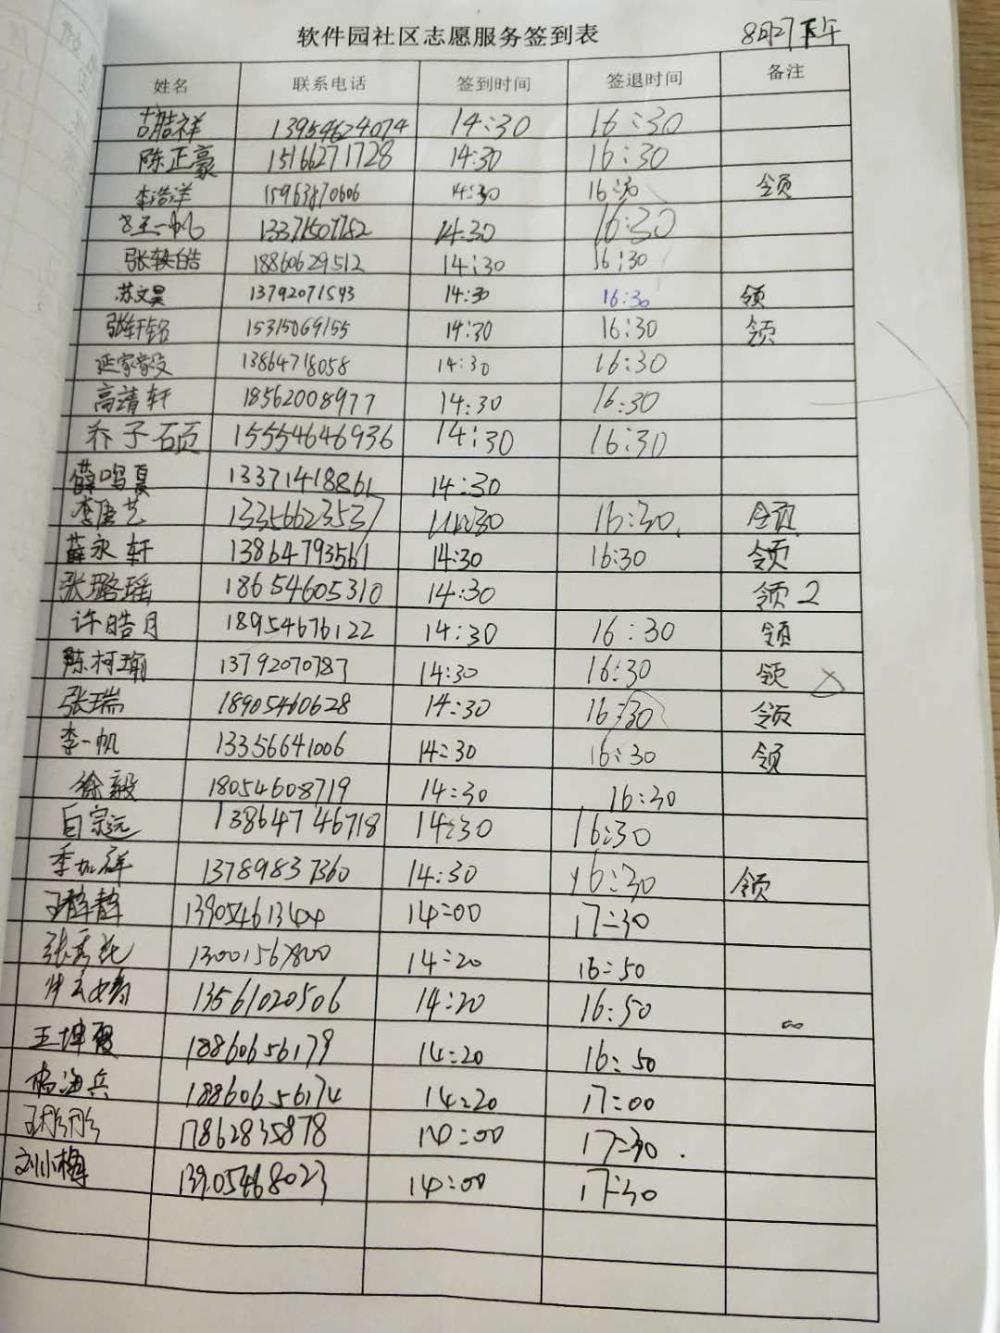 软件园社区志愿服务签到表 8月27下午
姓名 联系电话 签到时间 签退时间 备注
13954624074 14:30 16:30
陈正豪 15166271728 14:30 16:30
李浩洋 15963870606 14:30 16:30 领
13371507752 14:30 16:30
张轶皓 18860629512 14:30 16:30
苏文昊 13792071543 14:30 16:30 领
张轩铭 15315069155 14:30 16:30 领
延家毅 13864718058 14:30 16:30
高靖轩 18562008977 14:30 16:30
乔子硕 15554646936 14:30 16:30
薛鸣夏 13371418861 14:30
李唐艺 13356623537 14:30 16:30 领
薛永轩 13864793561 14:30 16:30 领
张璐瑶 18654605310 14:30 领2
许皓月 18954676122 14:30 16:30 领
陈柯瑜 13792070787 14:30 16:30 领
张瑞 18905460628 14:30 16:30 领
李一帆 13356641006 14:30 16:30 领
徐毅 18054608719 14:30 16:30
白宗远 13864746718 14:30 16:30
13789837360 14:30 16:30 领
王静静 13905461344 14:00 17:30
13001567800 14:20 16:50
13561020506 14:20 16:50
王坤霞 18860656179 14:20 16:50
杨海兵 18860656174 14:20 17:00
王彤彤 17862835878 14:00 17:30
刘小梅 13905468023 14:00 17:30